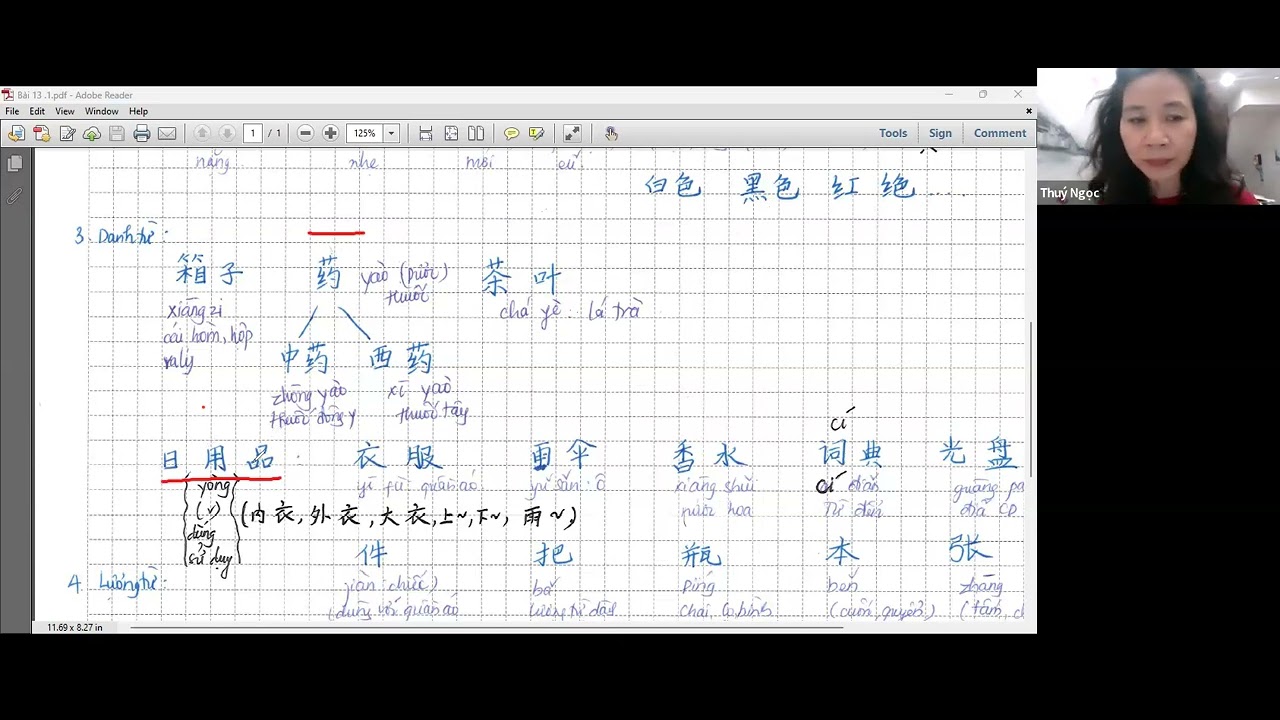 Bài 13 .1.pdf - Adobe Reader
File Edit View Window Help
1 / 1 125% Tools Sign Comment
Thuý Ngọc
nặng nhẹ mới cũ
白色 黑色 红 绝 .....
3. Danh từ:
箱子 药 yào (dược) 茶叶
thuốc
xiāng zi chá yè : lá trà
cái hòm, hộp
valy
中药 西药
zhōng yào xī yào
thuốc đông y thuốc tây
cí
日用品: 衣服 雨伞 香水 词典 光盘
yòng yī fú quần áo yǔ sǎn : ô xiāng shuǐ cí diǎn guāng pá
(v) nước hoa Từ điển đĩa CD
(内衣, 外衣, 大衣, 上~, 下~, 雨~,)
dùng
sử dụy
件 把 瓶 本 张
4. Lượng từ: jiàn chiếc) bǎ píng běn zhāng
(dùng với quần áo chai, lọ bình (cuốn, quyển) (tấm, c
11.69 x 8.27 in